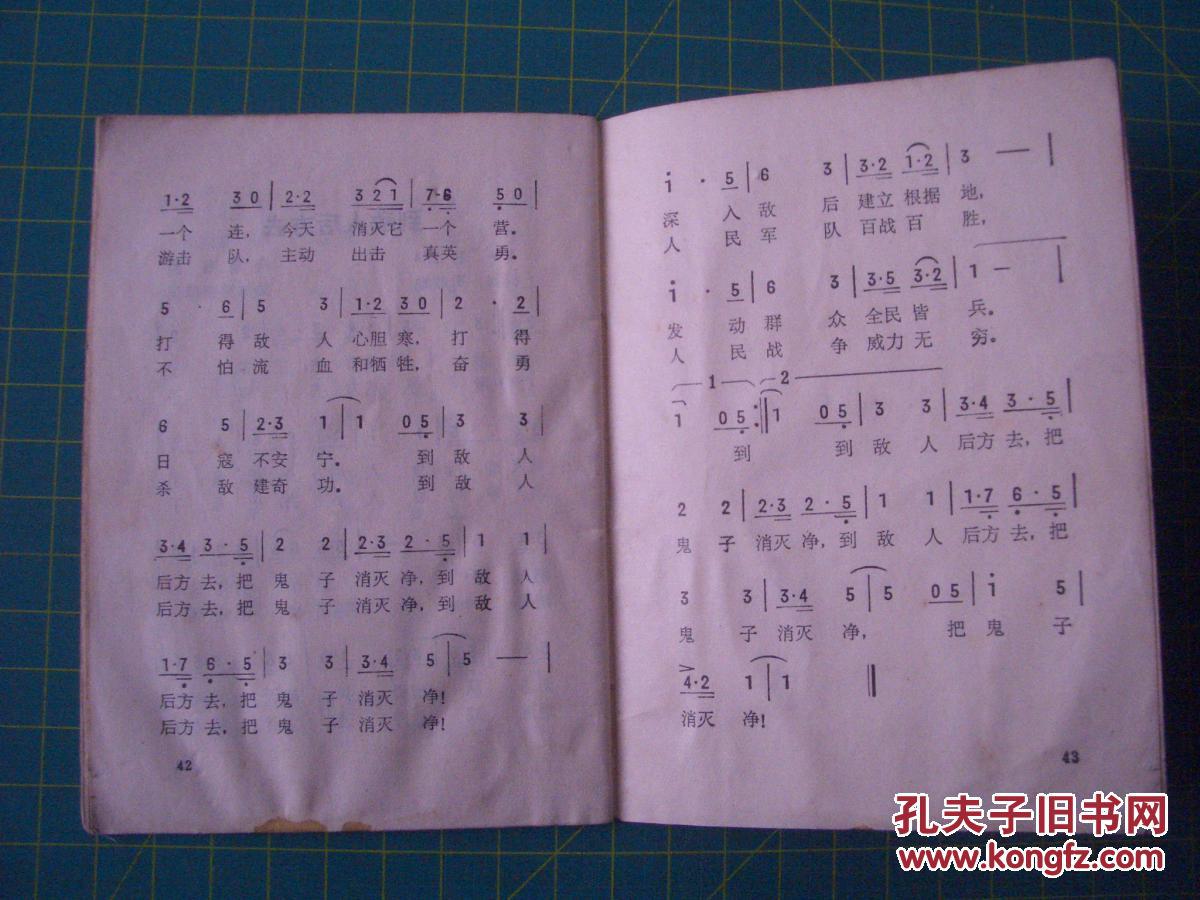 1·2 3 0 | 2·2 3 2 1 | 7·6 5 0 |
一个 连, 今天 消灭它 一个 营。
游击 队, 主动 出击 真英 勇。
5 · 6 | 5 3 | 1·2 3 0 | 2 · 2 |
打 得 敌 人 心胆 寒, 打 得
不 怕 流 血 和牺 牲, 奋 勇
6 5 | 2·3 1 | 1 0 5 | 3 3 |
日 寇 不安 宁。 到 敌 人
杀 敌 建奇 功。 到 敌 人
3·4 3·5 | 2 2 | 2·3 2·5 | 1 1 |
后方 去, 把 鬼 子 消灭 净, 到 敌 人
后方 去, 把 鬼 子 消灭 净, 到 敌 人
1·7 6·5 | 3 3 | 3·4 5 | 5 — |
后方 去, 把 鬼 子 消灭 净!
后方 去, 把 鬼 子 消灭 净!
42
1 · 5 | 6 3 | 3·2 1·2 | 3 — |
深 入 敌 后 建立 根据 地,
人 民 军 队 百战 百 胜,
1 · 5 | 6 3 | 3·5 3·2 | 1 — |
发 动 群 众 全民 皆 兵。
人 民 战 争 威力 无 穷。
1 2
1 0 5 :‖ 1 0 5 | 3 3 | 3·4 3·5 |
到 到 敌 人 后方 去, 把
2 2 | 2·3 2·5 | 1 1 | 1·7 6·5 |
鬼 子 消灭 净, 到 敌 人 后方 去, 把
3 3 | 3·4 5 | 5 0 5 | 1 5 |
鬼 子 消灭 净, 把 鬼 子
> 4·2 1 | 1 ‖
消灭 净!
43
孔夫子旧书网
www.kongfz.com